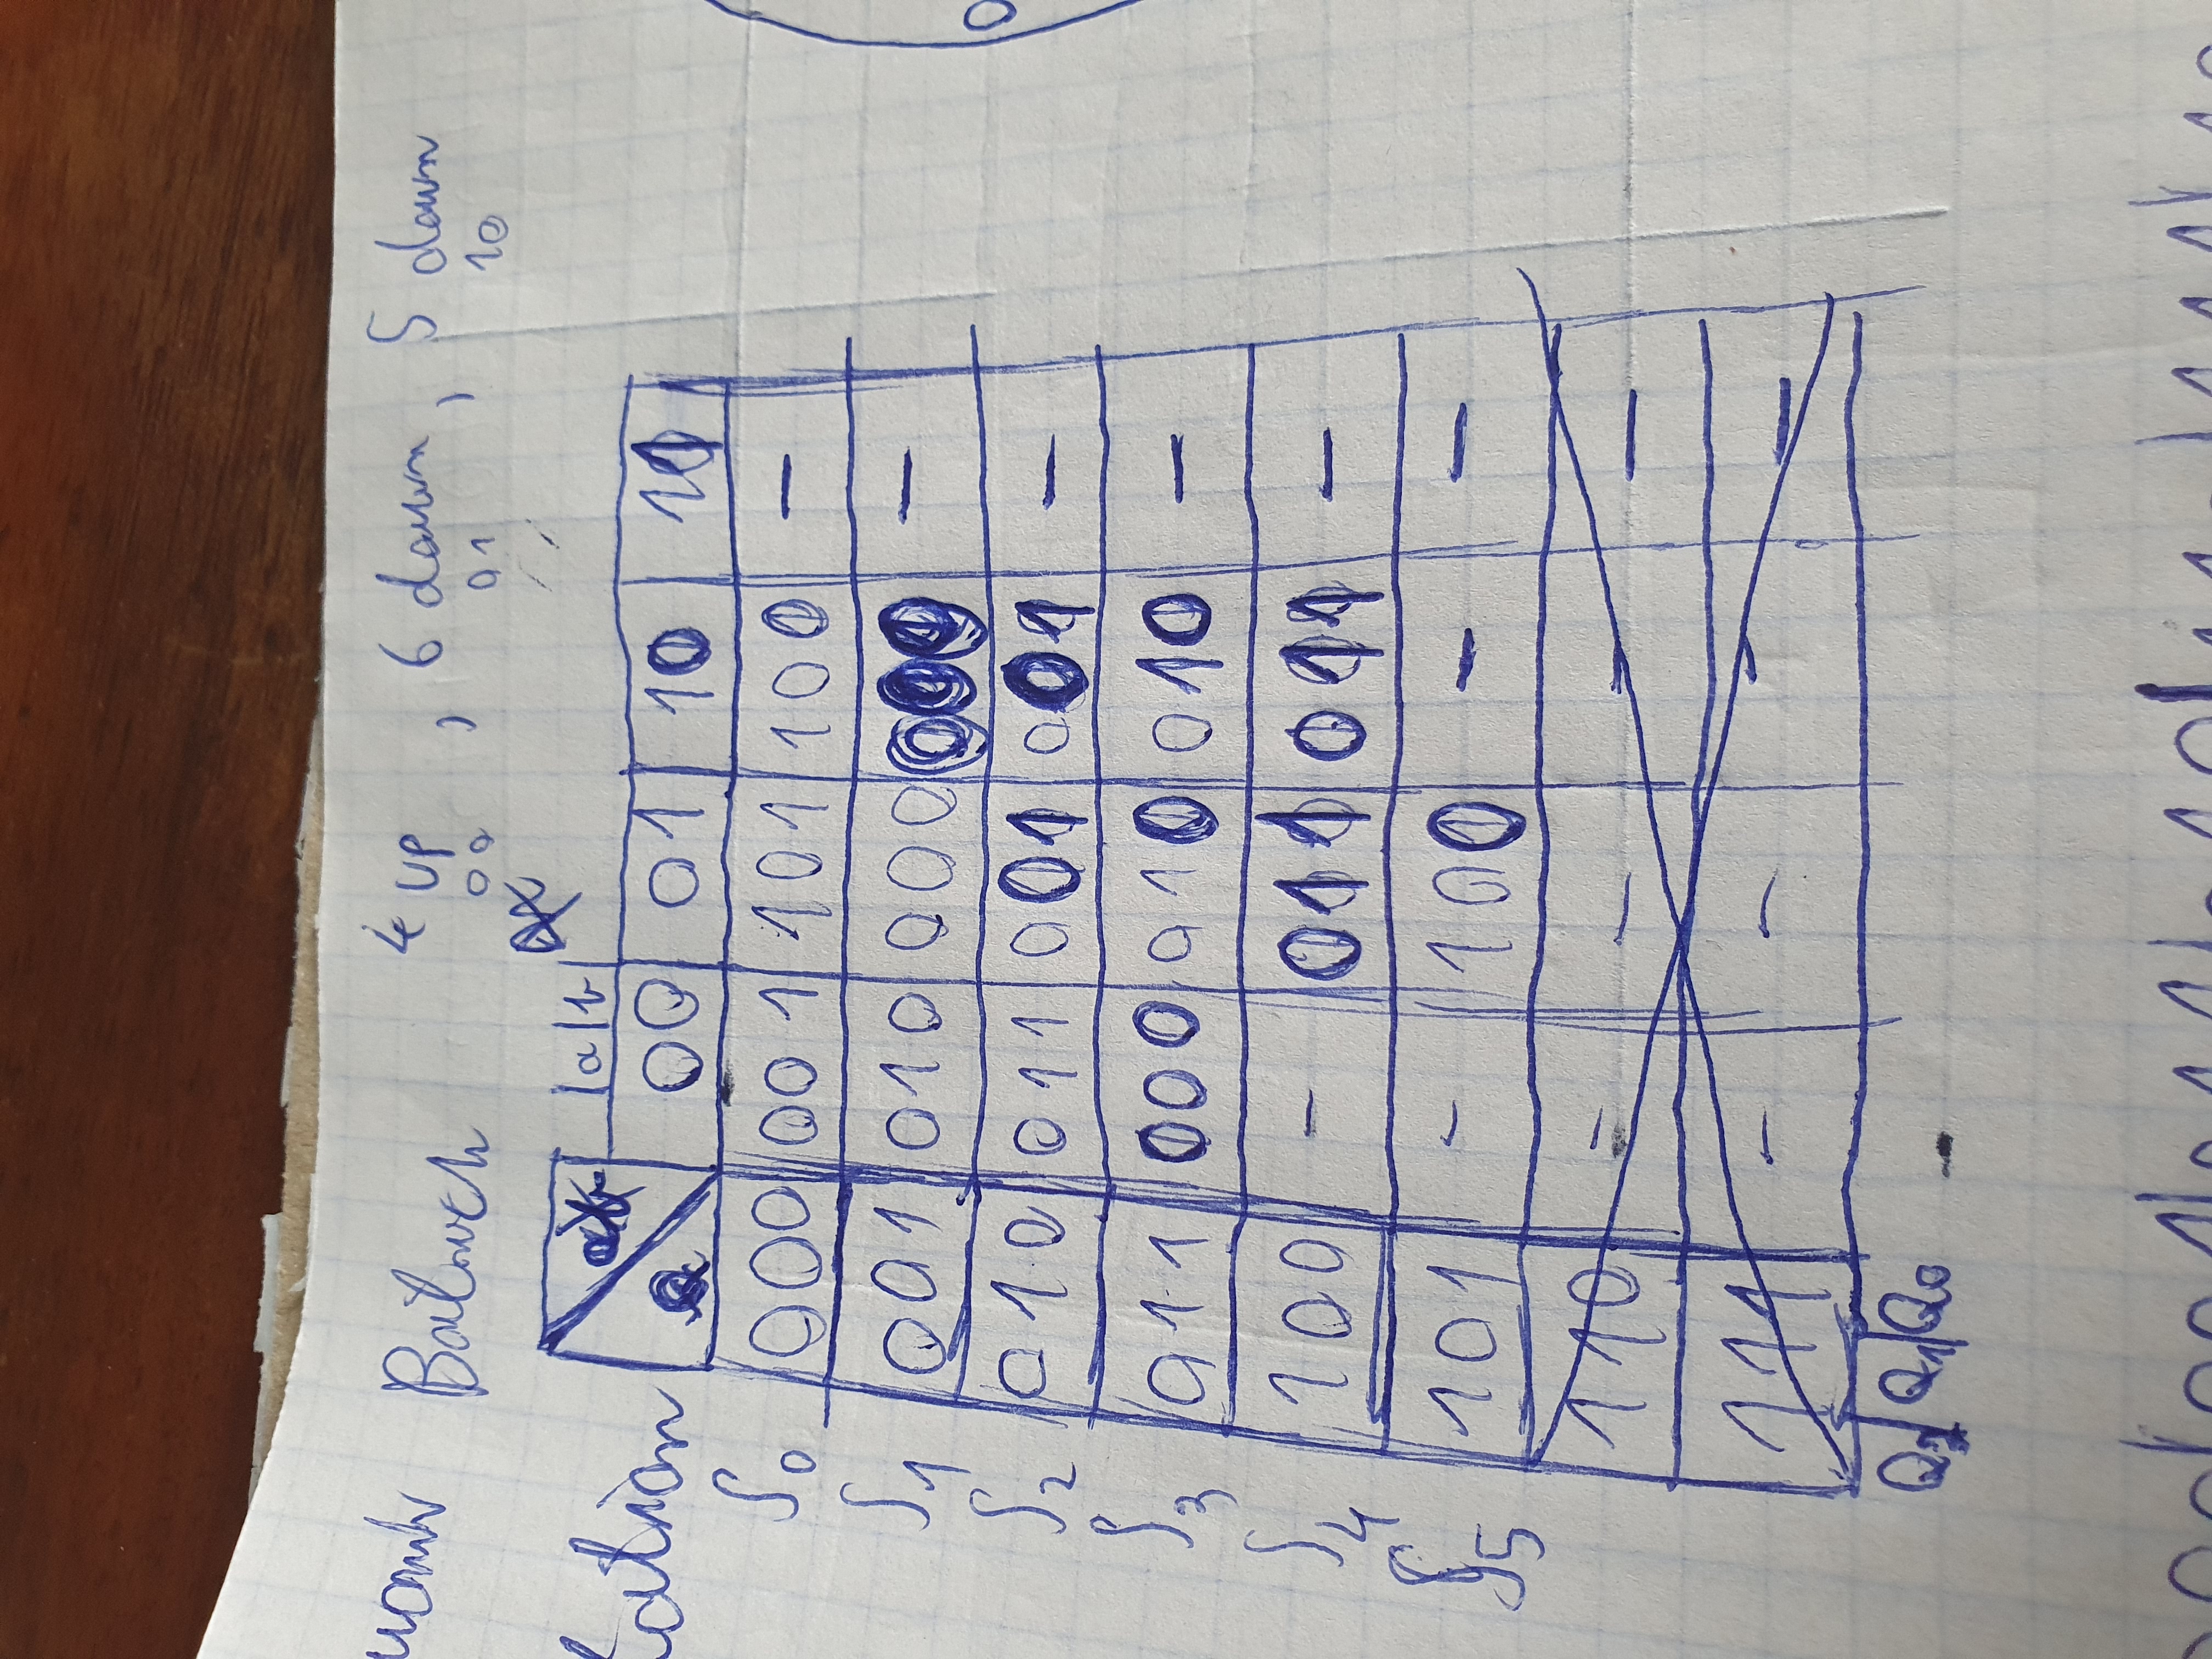 Batruch 4 up, 6 down, 5 down
00 01 10
a b
00 01 10 11
S0 000 001 101 100 -
S1 001 010 000 000 -
S2 010 011 001 001 -
S3 011 000 010 010 -
S4 100 - 011 011 -
S5 101 - 100 - -
110 - - - -
111 - - - -
Q2 Q1 Q0 -